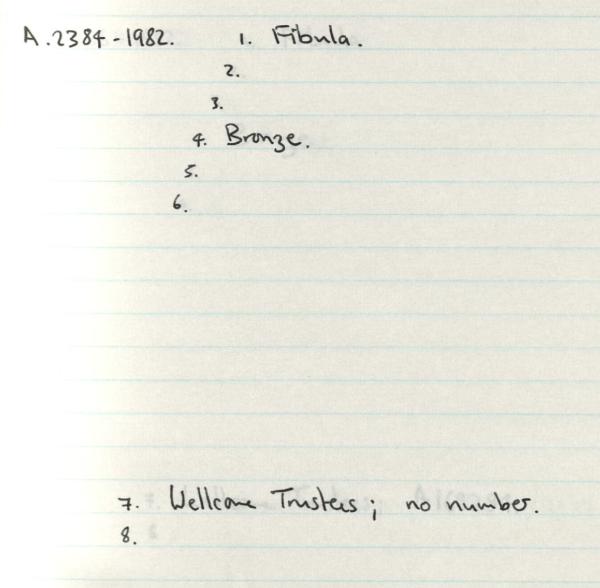 A.2384-1982. 1. Fibula.
2.
3.
4. Bronze.
5.
6.
7. Wellcome Trustees; no number.
8.